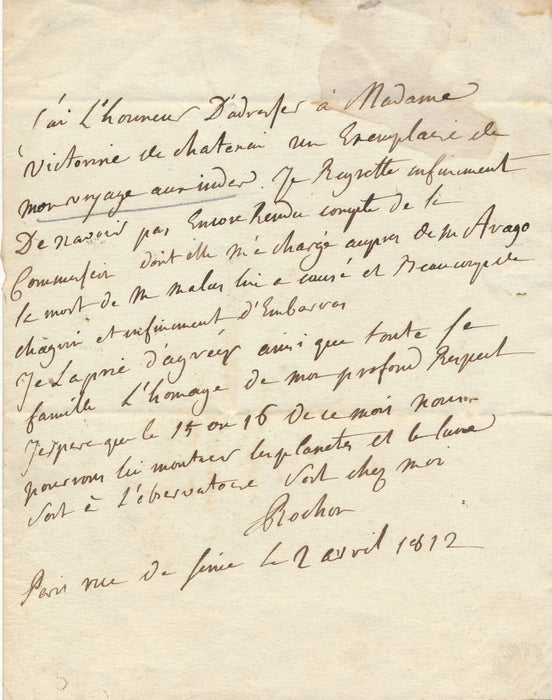 J'ai L'honneur D'adresser à Madame
Victorine de chatenai un Exemplaire de
mon voyage aux indes. Je Regrette infiniment
De navoir pas Encore Rendu compte de la
Commission dont elle m'e chargé aupres de mr Arago
la mort de Mr malus lui a causé et Beaucoup de
chagrin et infiniment d'Embarras
Je La prie d'agréér ainsi que toute sa
famille L'homage de mon profond Respect
J'espere que le 15 ou 16 De ce mois nous
pourrons lui montrer les planetes et la lune
soit à L'observatoire soit chez moi
Rochon
Paris rue de seine le 2 avril 1812